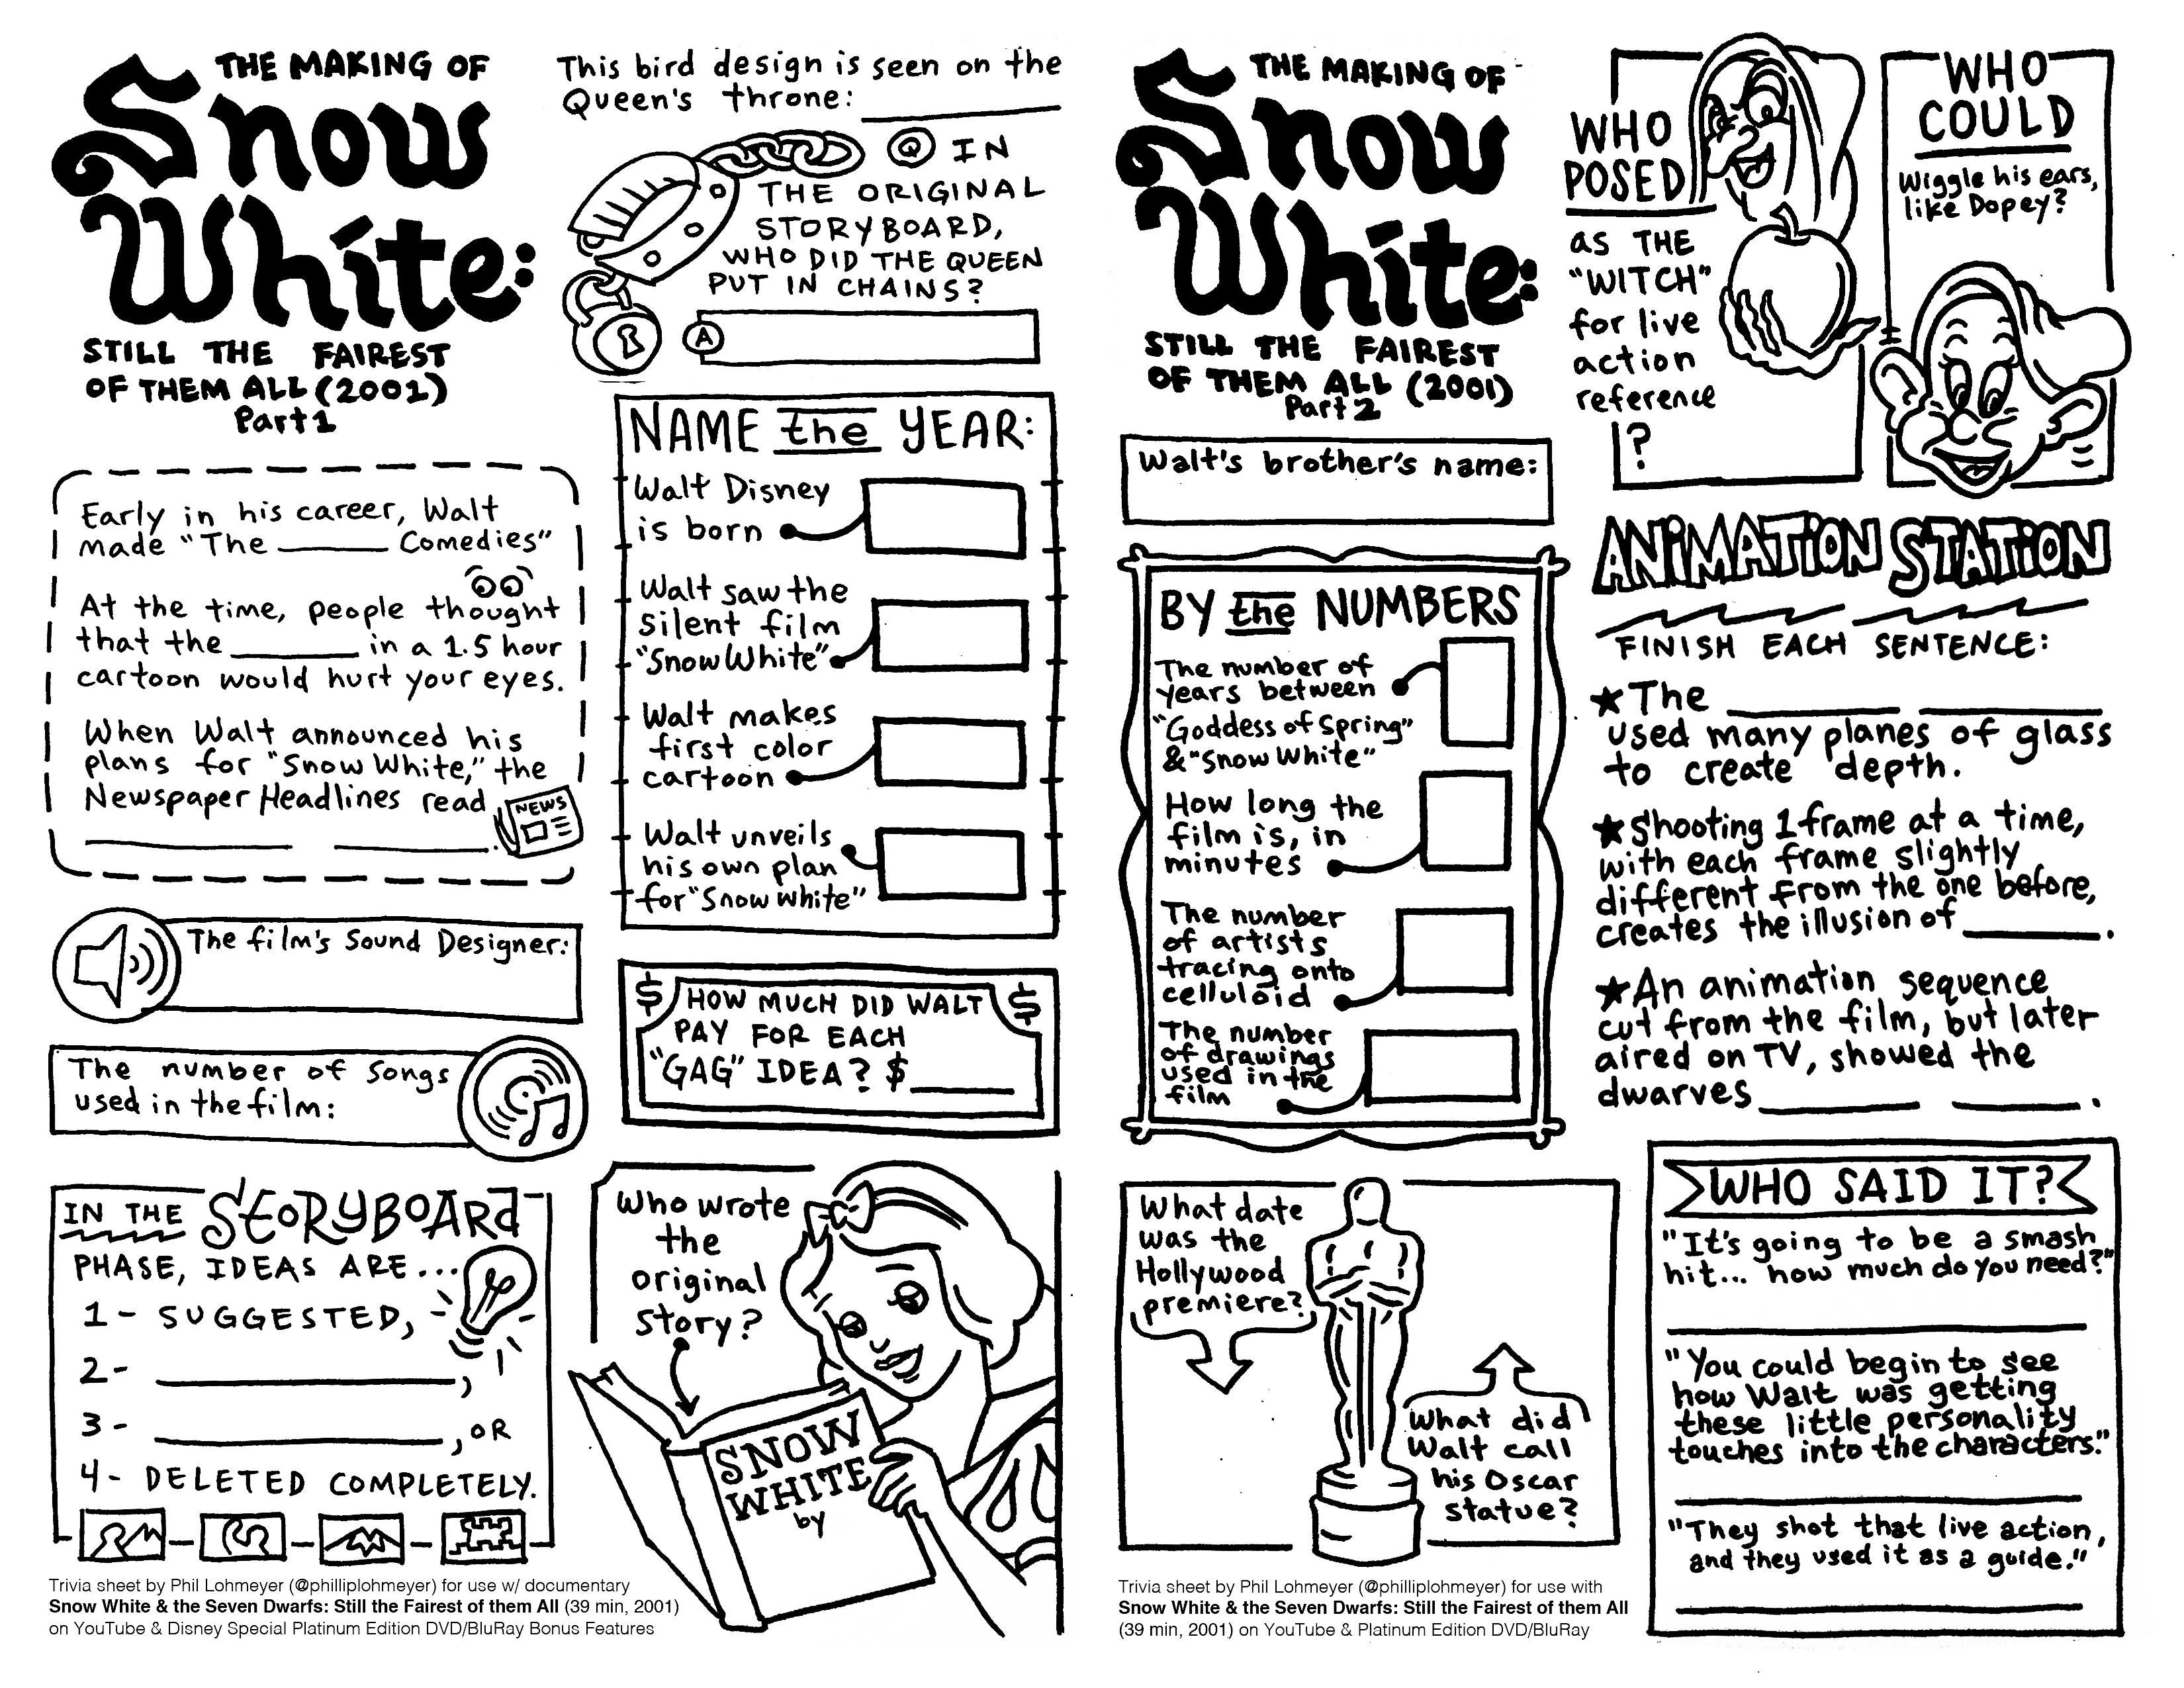 THE MAKING OF
Snow
White:
STILL THE FAIREST
OF THEM ALL (2001)
Part 1
Early in his career, Walt
made "The ________ Comedies"
At the time, people thought
that the ________ in a 1.5 hour
cartoon would hurt your eyes.
When Walt announced his
plans for "Snow White," the
Newspaper Headlines read
NEWS
________ ________.
The film's Sound Designer:
The number of Songs
used in the film:
IN THE STORYBOARD
PHASE, IDEAS ARE...
1- SUGGESTED,
2- ________,
3- ________, OR
4- DELETED COMPLETELY.
This bird design is seen on the
Queen's throne: ________
Q IN
THE ORIGINAL
STORYBOARD,
WHO DID THE QUEEN
PUT IN CHAINS?
A
NAME the YEAR:
Walt Disney
is born
Walt saw the
silent film
"Snow White"
Walt makes
first color
cartoon
Walt unveils
his own plan
for "Snow White"
$ HOW MUCH DID WALT $
PAY FOR EACH
"GAG" IDEA? $________
Who wrote
the
original
story?
SNOW
WHITE
by
Trivia sheet by Phil Lohmeyer (@philliplohmeyer) for use w/ documentary
Snow White & the Seven Dwarfs: Still the Fairest of them All (39 min, 2001)
on YouTube & Disney Special Platinum Edition DVD/BluRay Bonus Features
THE MAKING OF
Snow
White:
STILL THE FAIREST
OF THEM ALL (2001)
Part 2
Walt's brother's name:
BY the NUMBERS
The number of
years between
"Goddess of Spring"
& "Snow White"
How long the
film is, in
minutes
The number
of artists
tracing onto
celluloid
The number
of drawings
used in the
film
What date
was the
Hollywood
premiere?
What did
Walt call
his Oscar
statue?
WHO
POSED
as THE
"WITCH"
for live
action
reference
?
WHO
COULD
Wiggle his ears,
like Dopey?
ANIMATION STATION
FINISH EACH SENTENCE:
★ The ________ ________
used many planes of glass
to create depth.
★ Shooting 1 frame at a time,
with each frame slightly
different from the one before,
creates the illusion of ________.
★ An animation sequence
cut from the film, but later
aired on TV, showed the
dwarves ________ ________.
WHO SAID IT?
"It's going to be a smash
hit... how much do you need?"
"You could begin to see
how Walt was getting
these little personality
touches into the characters."
"They shot that live action,
and they used it as a guide."
Trivia sheet by Phil Lohmeyer (@philliplohmeyer) for use with
Snow White & the Seven Dwarfs: Still the Fairest of them All
(39 min, 2001) on YouTube & Platinum Edition DVD/BluRay